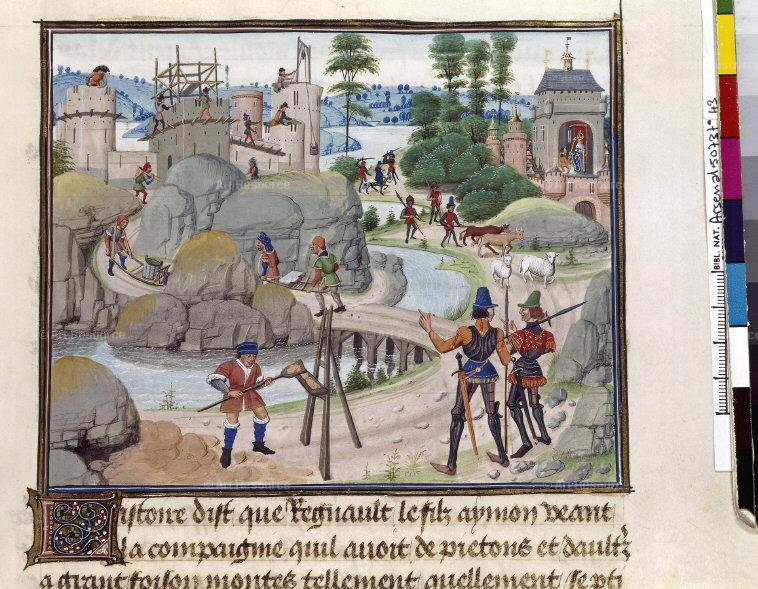 Art Resource
BIBL. NAT. Arsenal 5073 fº 43
Histoire dist que Regnault le filz aymon veant
la compaignie quil auoit de pietons et daultz
a grant foison montes tellement quellement se pti